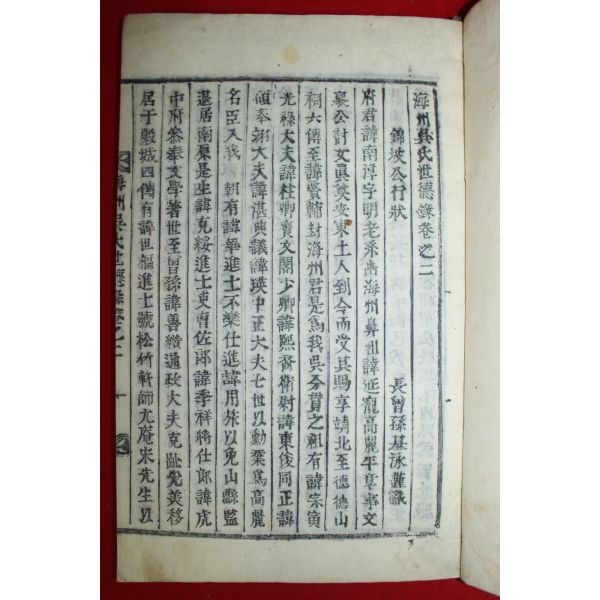 海州吳氏世德錄卷之二
錦坡公行狀 長曾孫基泳謹識
府君諱南淳字明老系出海州鼻祖諱延寵高麗平章事文
襄公討女眞奠安東土人到今而受其賜享靖北至德德山
祠六傳至諱賢輔封海州君是爲我吳分貫之祖有諱宗寅
光祿大夫諱桂卿寶文閣少卿諱熙裔衛尉諱東俊同正諱
頎奉翊大夫諱湛典議諱瑛中正大夫七世以勳業爲高麗
名臣入我 朝有諱華進士不樂仕進諱用旅以免山縣監
退居南原是生諱克綏進士吏曹佐郎諱季祥將仕郎諱虎
中府參奉文學著世至曾孫諱善纘通政大夫克趾先美移
居于穀城四傳有諱世樞進士號松竹軒師尤庵宋先生以
海州吳氏世德錄卷之二 一